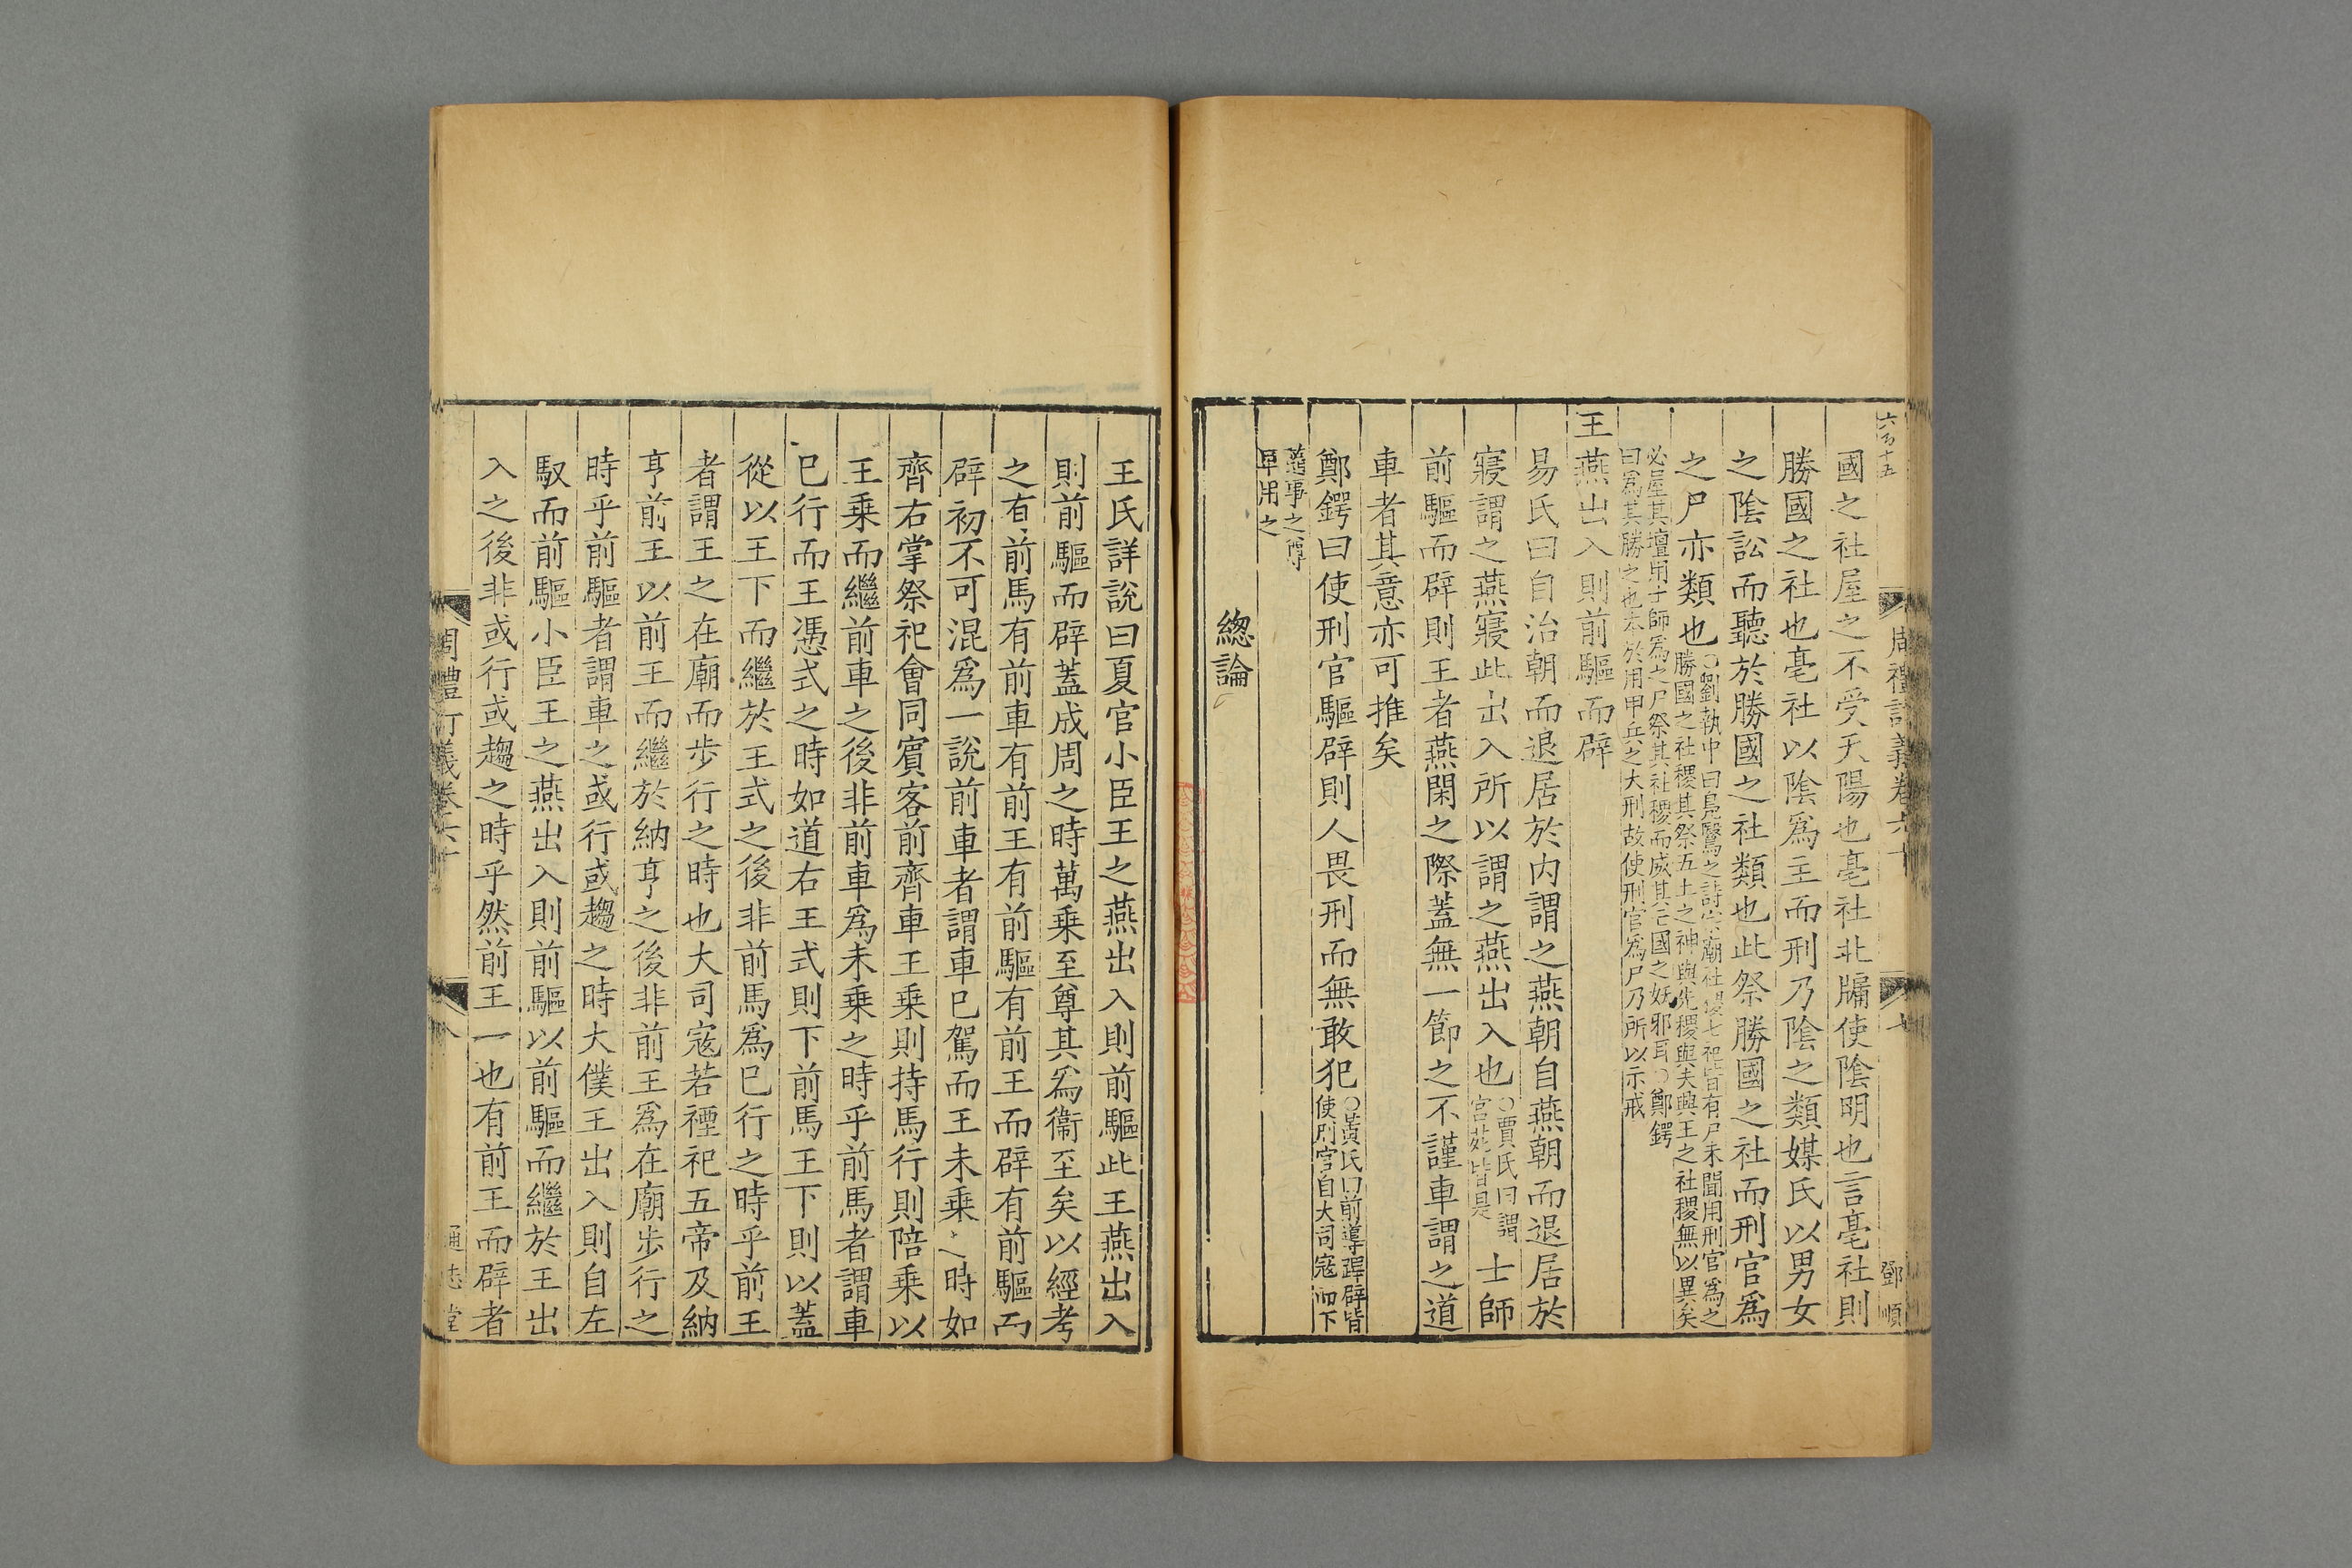 國之社屋之不受天陽也亳社北牖使陰明也言亳社則
勝國之社也亳社以陰爲主而刑乃陰之類媒氏以男女
之陰訟而聽於勝國之社類也此祭勝國之社而刑官爲
之尸亦類也
○劉執中曰鳧鷖之詩宗廟社稷七祀皆有尸未聞用刑官爲之
勝國之社稷其祭五土之神與先稷與夫與王之社稷無以異矣
必屋其壇用士師爲之尸祭其社稷而威其亡國之妖邪耳○鄭鍔
曰爲其勝之也本於用甲兵之大刑故使刑官爲尸乃所以示戒
王燕出入則前驅而辟
易氏曰自治朝而退居於内謂之燕朝自燕朝而退居於
寢謂之燕寢此出入所以謂之燕出入也
○賈氏曰謂
宮苑皆是
士師
前驅而辟則王者燕閑之際蓋無一節之不謹車謂之道
車者其意亦可推矣
鄭鍔曰使刑官驅辟則人畏刑而無敢犯
○黃氏曰前導蹕辟皆
使刑官自大司寇而下
蓋事之尊
卑用之
總論
王氏詳說曰夏官小臣王之燕出入則前驅此王燕出入
則前驅而辟蓋成周之時萬乘至尊其爲衞至矣以經考
之有前馬有前車有前王有前驅有前王而辟有前驅而
辟初不可混爲一說前車者謂車巳駕而王未乘之時如
齊右掌祭祀會同賓客前齊車王乘則持馬行則陪乘以
王乘而繼前車之後非前車爲未乘之時乎前馬者謂車
巳行而王憑式之時如道右王式則下前馬王下則以蓋
從以王下而繼於王式之後非前馬爲巳行之時乎前王
者謂王之在廟而步行之時也大司寇若禋祀五帝及納
亨前王以前王而繼於納亨之後非前王爲在廟步行之
時乎前驅者謂車之或行或趨之時大僕王出入則自左
馭而前驅小臣王之燕出入則前驅以前驅而繼於王出
入之後非或行或趨之時乎然前王一也有前王而辟者
周禮訂義卷六十
八
通志堂
六百十五
周禮訂義卷六十
七
鄧順